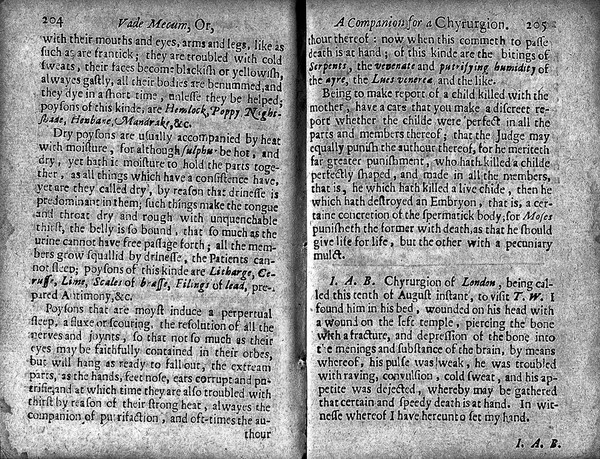 204
Vade Mecum, Or,
with their mouths and eyes, arms and legs, like as
such as are frantick; they are troubled with cold
sweats, their faces become blackish or yellowish,
alwayes gastly, all their bodies are benummed, and
they dye in a short time, unlesse they be helped;
poysons of this kinde, are Hemlock, Poppy, Night-
shade, Henbane, Mandrake, &c.
Dry poysons are usually accompanied by heat
with moisture, for although sulphur be hot, and
dry, yet hath it moisture to hold the parts toge-
ther, as all things which have a consistence have,
yet are they called dry, by reason that drinesse is
predominant in them, such things make the tongue
and throat dry and rough with unquenchable
thirst, the belly is so bound, that so much as the
urine cannot have free passage forth; all the mem-
bers grow squallid by drinesse, the Patients can-
not sleep; poysons of this kinde are Litharge, Ce-
russe, Lime, Scales of brasse, Filings of lead, pre-
pared Antimony, &c.
Poysons that are moyst induce a perpetual
sleep, a fluxe or scouring, the resolution of all the
nerves and joynts, so that not so much as their
eyes may be faithfully contained in their orbes,
but will hang as ready to fall out, the extream
parts, as the hands, feet nose, ears corrupt and pu-
trifie, and at which time they are also troubled with
thirst by reason of their strong heat, alwayes the
companion of putrifaction, and oft-times the au-
thour
A Companion for a Chyrurgion. 205
thour thereof: now when this commeth to passe
death is at hand; of this kinde are the bitings of
Serpents, the venenate and putrifying humidity of
the ayre, the Lues venerea and the like.
Being to make report of a child killed with the
mother, have a care that you make a discreet re-
port whether the childe were perfect in all the
parts and members thereof; that the Judge may
equally punish the authour thereof, for he meriteth
far greater punishment, who hath killed a childe
perfectly shaped, and made in all the members,
that is, he which hath killed a live chide, then he
which hath destroyed an Embryon, that is, a cer-
taine concretion of the spermatick body, for Moses
punisheth the former with death, as that he should
give life for life, but the other with a pecuniary
mulct.
I. A. B. Chyrurgion of London, being cal-
led this tenth of August instant, to visit T. W. I
found him in his bed, wounded on his head with
a wound on the left temple, piercing the bone
with a fracture, and depression of the bone into
the menings and substance of the brain, by means
whereof, his pulse was weak, he was troubled
with raving, convulsion, cold sweat, and his ap-
petite was dejected, whereby may be gathered
that certain and speedy death is at hand. In wit-
nesse whereof I have hereunto set my hand.
I. A. B.